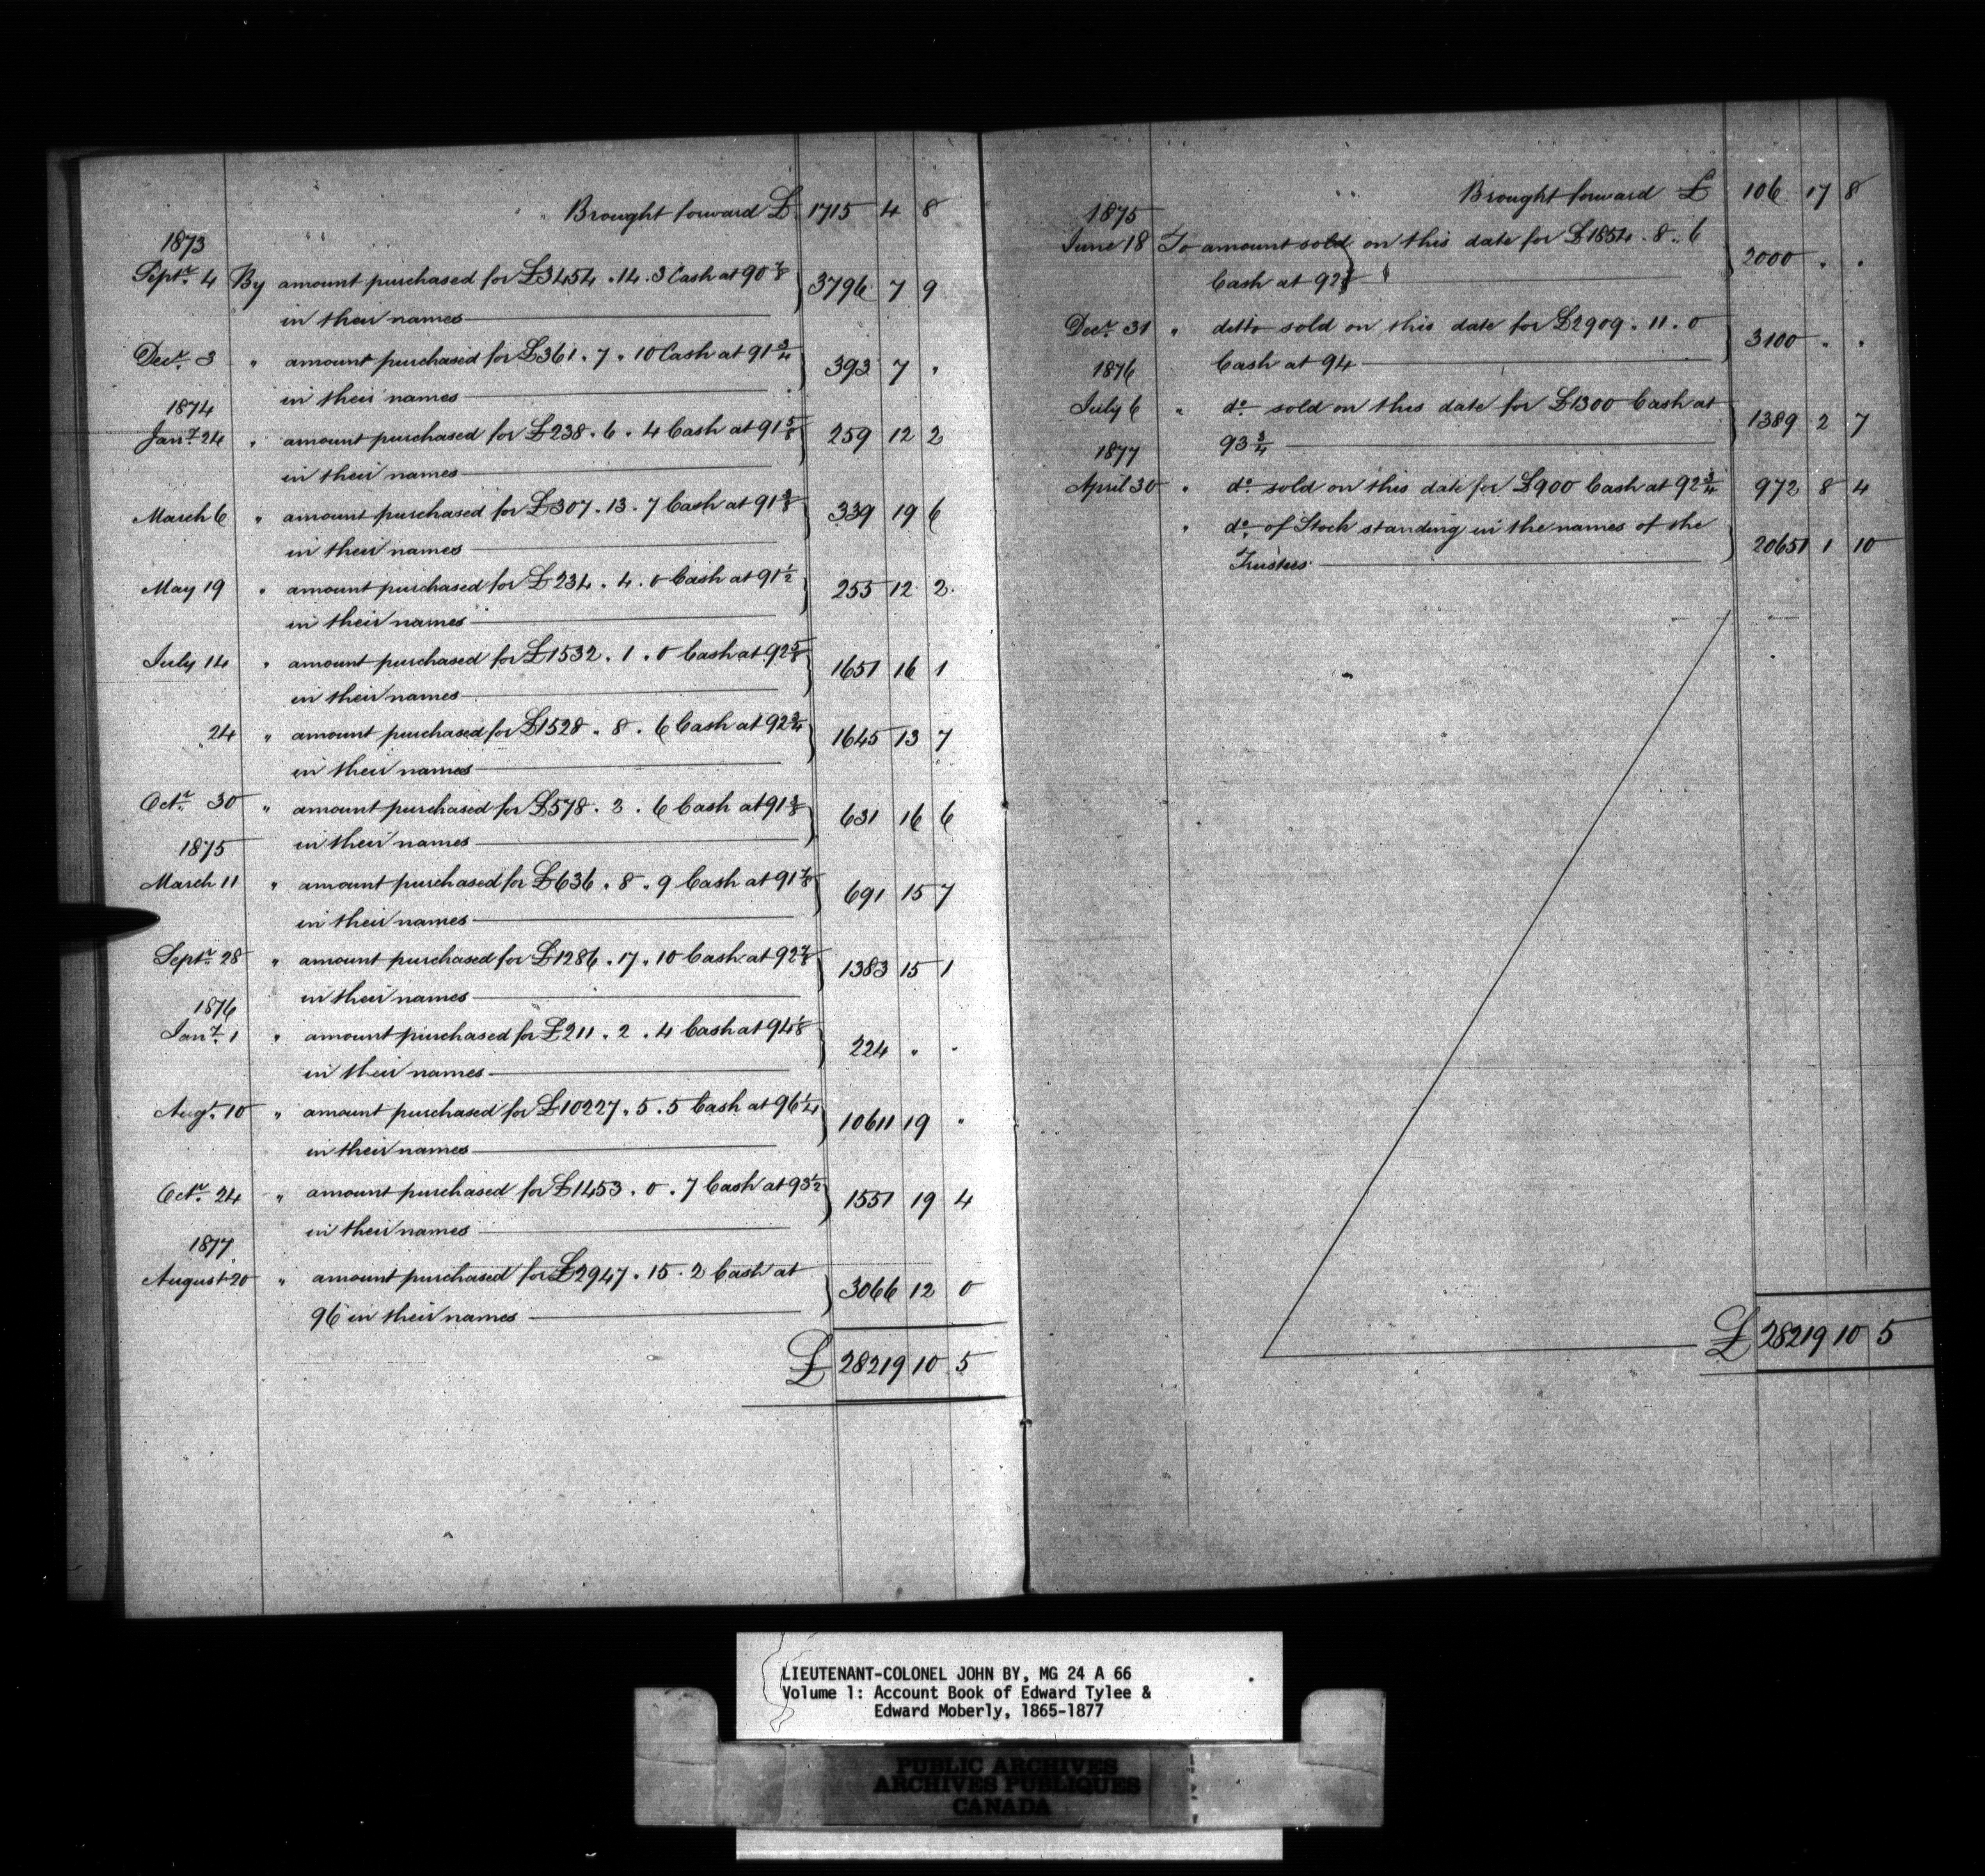 Brought forward £ 1715 4 8
1873
Septr. 4 By amount purchased for £3454.14.3 Cash at 90 7/8
in their names 3796 7 9
Decr. 3 " amount purchased for £361.7.10 Cash at 91 3/4
in their names 393 7 "
1874
Jany. 24 " amount purchased for £238.6.4 Cash at 91 5/8
in their names 259 12 2
March 6 " amount purchased for £307.13.7 Cash at 91 3/8
in their names 339 19 6
May 19 " amount purchased for £234.4.0 Cash at 91 1/2
in their names 255 12 2
July 14 " amount purchased for £1532.1.0 Cash at 92 5/8
in their names 1651 16 1
24 " amount purchased for £1528.8.6 Cash at 92 3/4
in their names 1645 13 7
Octr. 30 " amount purchased for £578.3.6 Cash at 91 3/8
in their names 631 16 6
1875
March 11 " amount purchased for £636.8.9 Cash at 91 7/8
in their names 691 15 7
Septr. 28 " amount purchased for £1286.17.10 Cash at 92 7/8
in their names 1383 15 1
1876
Jany. 1 " amount purchased for £211.2.4 Cash at 94 1/8
in their names 224 " "
Augt. 10 " amount purchased for £10227.5.5 Cash at 96 1/4
in their names 10611 19 "
Octr. 24 " amount purchased for £1453.0.7 Cash at 93 1/2
in their names 1551 19 4
1877
August 20 " amount purchased for £2947.15.2 Cash at
96 in their names 3066 12 0
£ 28219 10 5
Brought forward £ 106 17 8
1875
June 18 To amount sold on this date for £1854.8.6
Cash at 92 2000 " "
Decr. 31 " ditto sold on this date for £2909.11.0
Cash at 94 3100 " "
1876
July 6 " do. sold on this date for £1300 Cash at
93 3/4 1389 2 7
1877
April 30 " do. sold on this date for £900 Cash at 92 3/4 972 8 4
" do. of Stock standing in the names of the
Trustees 20651 1 10
£ 28219 10 5
LIEUTENANT-COLONEL JOHN BY, MG 24 A 66
Volume 1: Account Book of Edward Tylee &
Edward Moberly, 1865-1877
PUBLIC ARCHIVES
ARCHIVES PUBLIQUES
CANADA